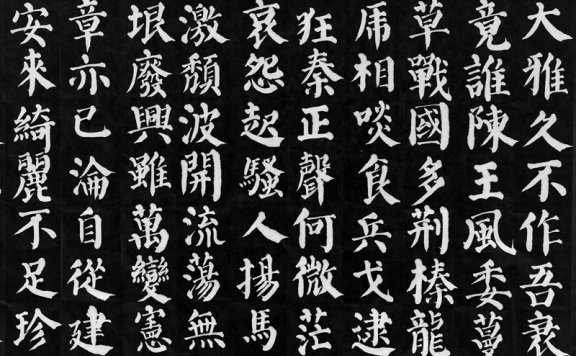 大雅久不作吾衰
竟誰陳王風委蔓
草戰國多荆榛龍
虎相啖食兵戈逮
狂秦正聲何微茫
哀怨起騷人揚馬
激頹波開流蕩無
垠廢興雖萬變憲
章亦已淪自從建
安來綺麗不足珍